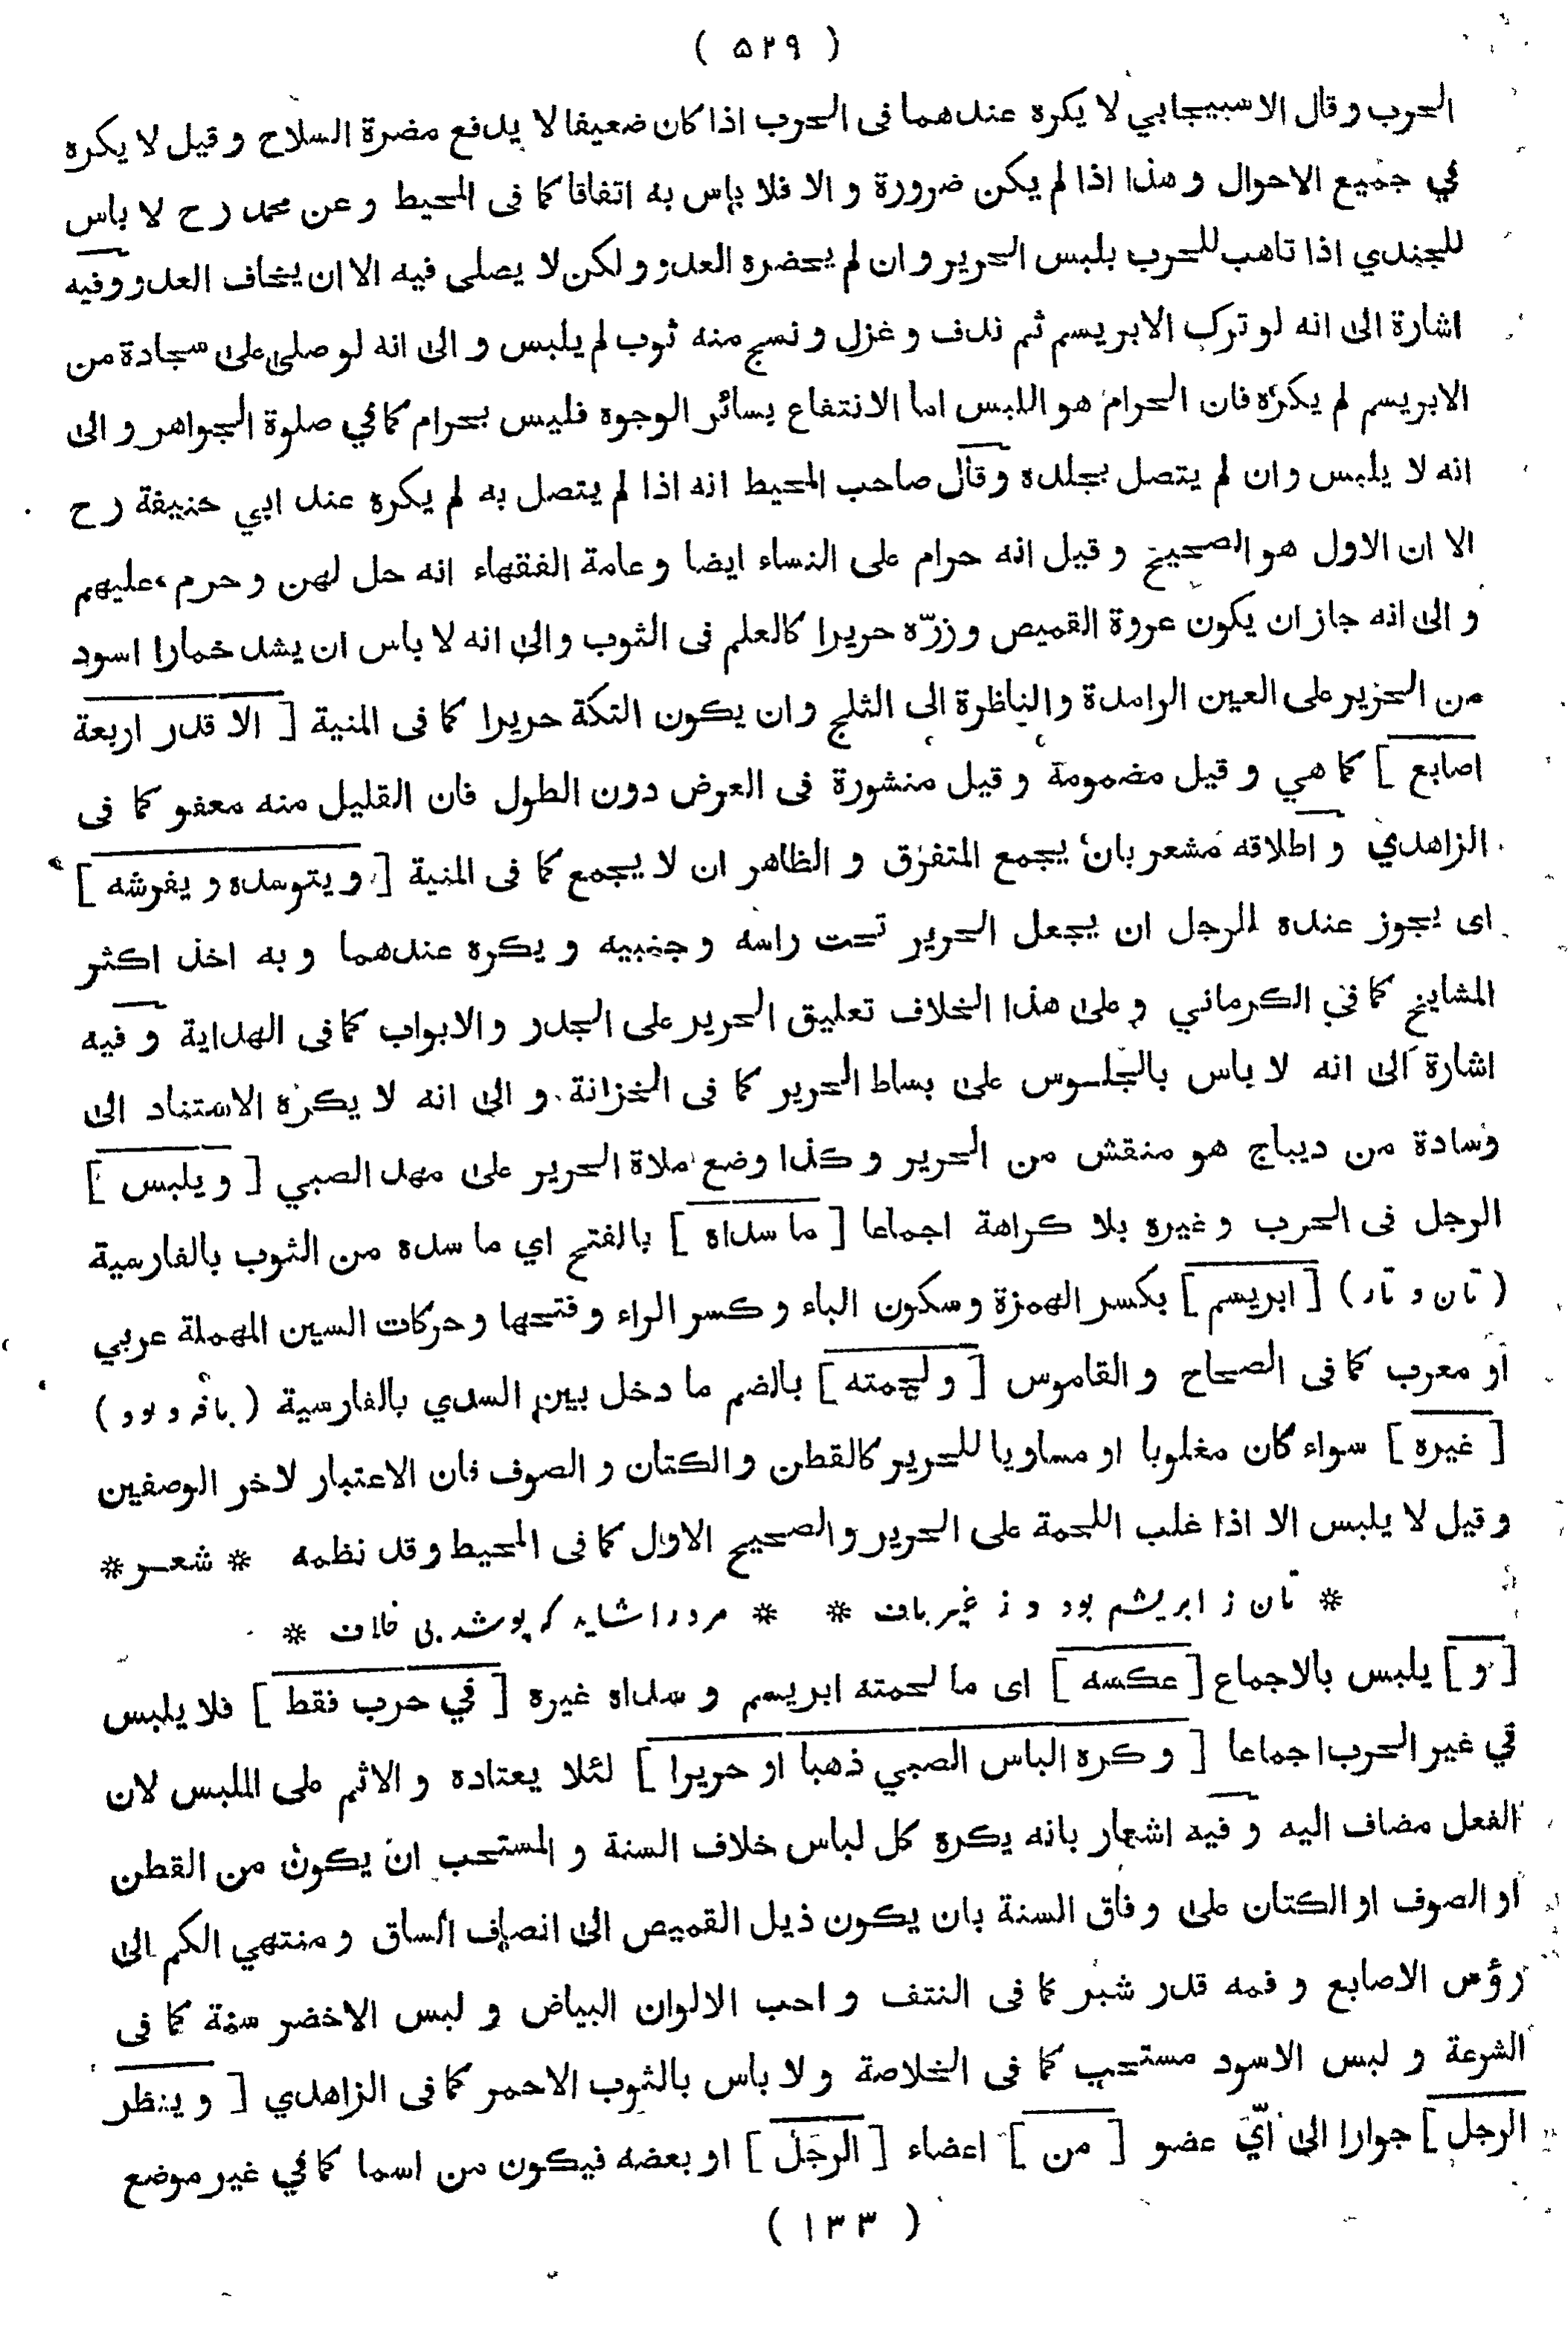 ( ۵۲۹ )
الحرب و قال الاسبيجابي لا يكره عندهما فى الحرب اذا كان ضعيفا لا يدفع مضرة السلاح و قيل لا يكره
في جميع الاحوال و هذا اذا لم يكن ضرورة و الا فلا باس به اتفاقا كما فى المحيط و عن محمد رح لا باس
للجندي اذا تاهب للحرب بلبس الحرير و ان لم يحضره العدو و لكن لا يصلى فيه الا ان يخاف العدو و فيه
اشارة الى انه لو ترك الابريسم ثم ندف و غزل و نسج منه ثوب لم يلبس و الى انه لو صلى على سجادة من
الابريسم لم يكره فان الحرام هو اللبس اما الانتفاع بسائر الوجوه فليس بحرام كما في صلوة الجواهر و الى
انه لا يلبس و ان لم يتصل بجلده و قال صاحب المحيط انه اذا لم يتصل به لم يكره عند ابي حنيفة رح
الا ان الاول هو الصحيح و قيل انه حرام على النساء ايضا و عامة الفقهاء انه حل لهن و حرم عليهم
و الى انه جاز ان يكون عروة القميص و زرّه حريرا كالعلم فى الثوب و الى انه لا باس ان يشد خمارا اسود
من الحرير على العين الرامدة و الناظرة الى الثلج و ان يكون التكة حريرا كما فى المنية [ الا قدر اربعة
اصابع ] كما هي و قيل مضمومة و قيل منشورة فى العرض دون الطول فان القليل منه معفو كما فى
الزاهدي و اطلاقه مشعر بان يجمع المتفرق و الظاهر ان لا يجمع كما فى المنية [ و يتوسده و يفرشه ]
اى يجوز عنده للرجل ان يجعل الحرير تحت راسه و جنبيه و يكره عندهما و به اخذ اكثر
المشايخ كما في الكرماني و على هذا الخلاف تعليق الحرير على الجدر و الابواب كما فى الهداية و فيه
اشارة الى انه لا باس بالجلوس على بساط الحرير كما فى الخزانة و الى انه لا يكره الاستناد الى
وسادة من ديباج هو منقش من الحرير و كذا وضع ملاة الحرير على مهد الصبي [ و يلبس ]
الرجل فى الحرب و غيره بلا كراهة اجماعا [ ما سداه ] بالفتح اي ما سده من الثوب بالفارسية
( تان و تار ) [ ابريسم ] بكسر الهمزة و سكون الباء و كسر الراء و فتحها و حركات السين المهملة عربي
او معرب كما فى الصحاح و القاموس [ و لحمته ] بالضم ما دخل بين السدي بالفارسية ( بافه و پود )
[ غيره ] سواء كان مغلوبا او مساويا للحرير كالقطن و الكتان و الصوف فان الاعتبار لاخر الوصفين
و قيل لا يلبس الا اذا غلب اللحمة على الحرير و الصحيح الاول كما فى المحيط و قد نظمه * شعر *
* تان ز ابريشم بود و ز غير باف * * مرد را شايد كه پوشد بى خلاف *
[ و ] يلبس بالاجماع [ عكسه ] اى ما لحمته ابريسم و سداه غيره [ في حرب فقط ] فلا يلبس
في غير الحرب اجماعا [ و كره الباس الصبي ذهبا او حريرا ] لئلا يعتاده و الاثم على الملبس لان
الفعل مضاف اليه و فيه اشعار بانه يكره كل لباس خلاف السنة و المستحب ان يكون من القطن
او الصوف او الكتان على وفاق السنة بان يكون ذيل القميص الى انصاف الساق و منتهي الكم الى
رؤس الاصابع و فمه قدر شبر كما فى النتف و احب الالوان البياض و لبس الاخضر سنة كما فى
الشرعة و لبس الاسود مستحب كما فى الخلاصة و لا باس بالثوب الاحمر كما فى الزاهدي [ و ينظر
الرجل ] جوارا الى ايّ عضو [ من ] اعضاء [ الرجل ] او بعضه فيكون من اسما كما في غير موضع
( ١٣٣ )